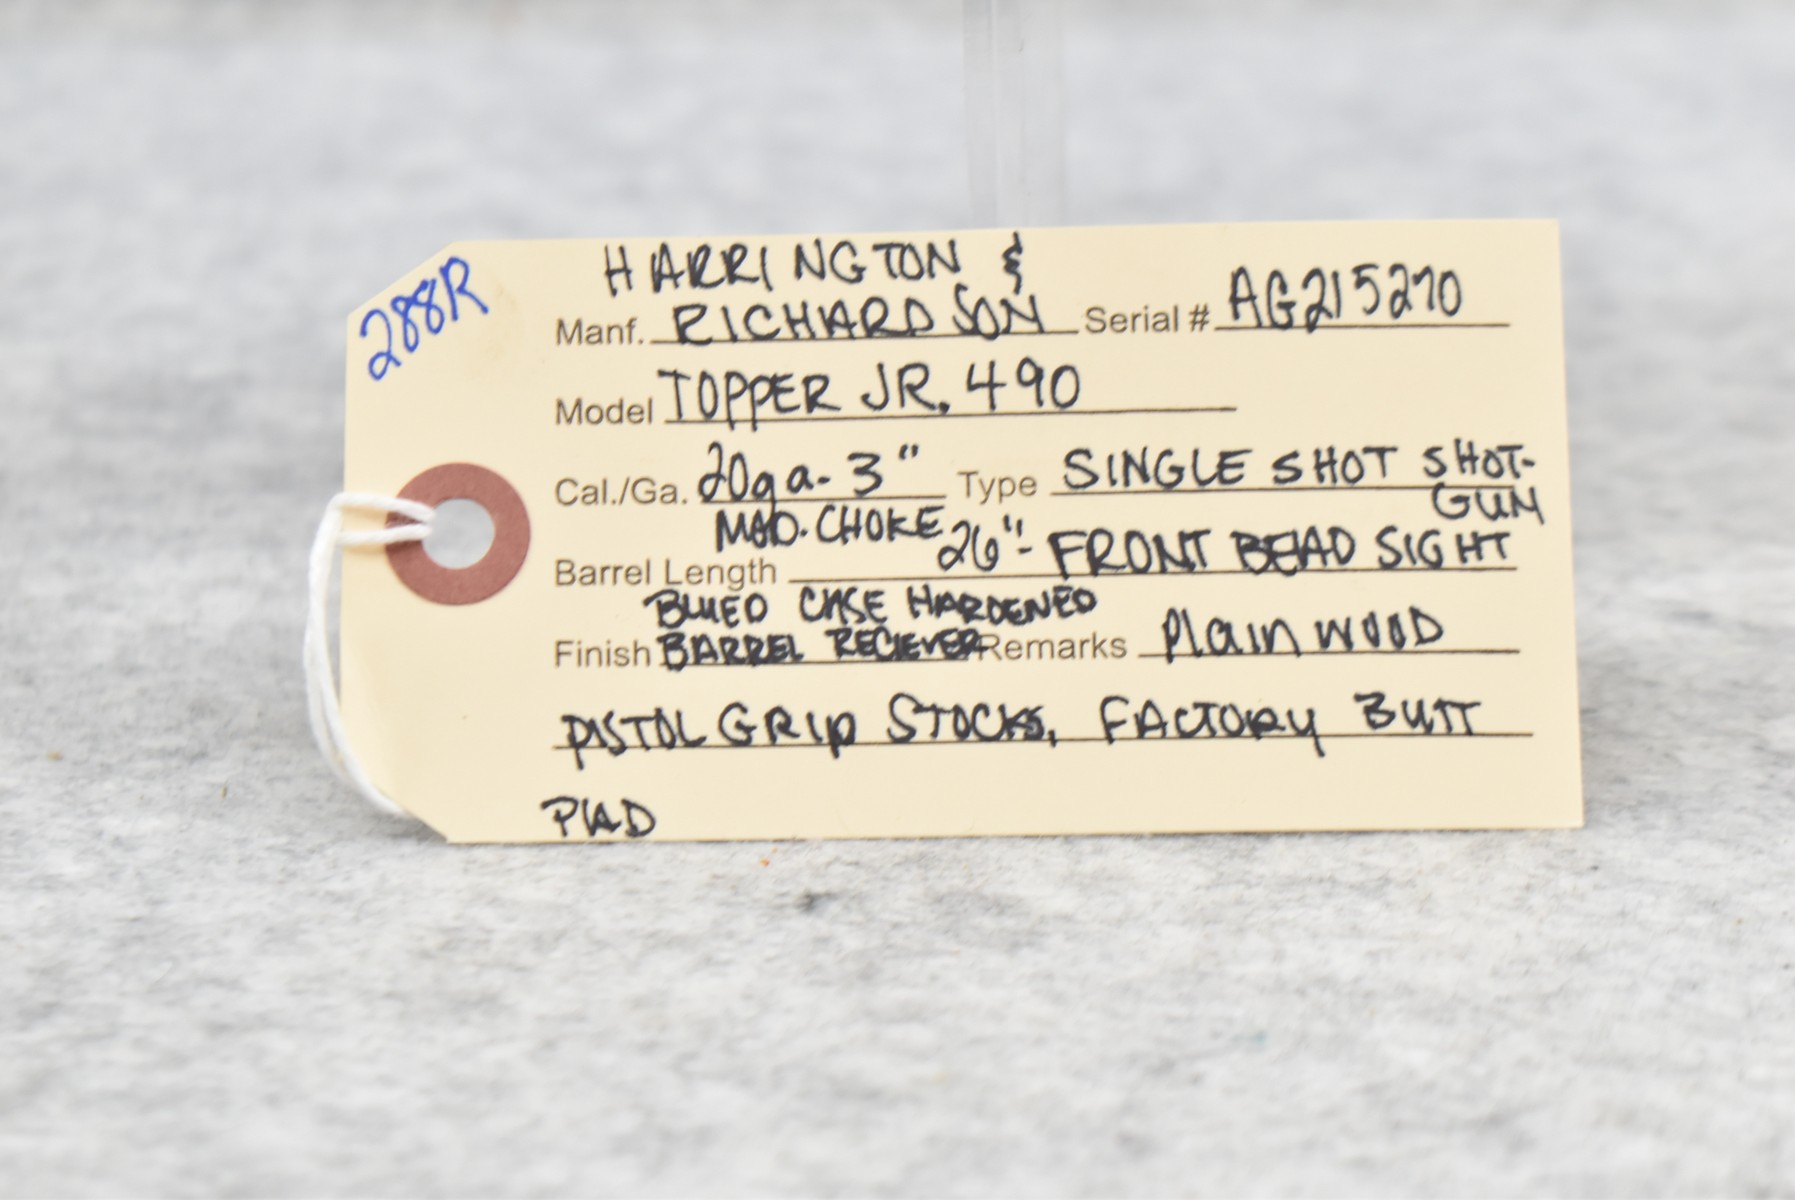 288R
HARRINGTON &
Manf. RICHARDSON Serial # AG215270
Model TOPPER JR. 490
Cal./Ga. 20ga- 3" Type SINGLE SHOT SHOT-
GUN
MOD. CHOKE
Barrel Length 26"- FRONT BEAD SIGHT
BLUED CASE HARDENED
Finish BARREL RECIEVER Remarks Plain WOOD
PISTOL GRIP STOCKS, FACTORY BUTT
PAD